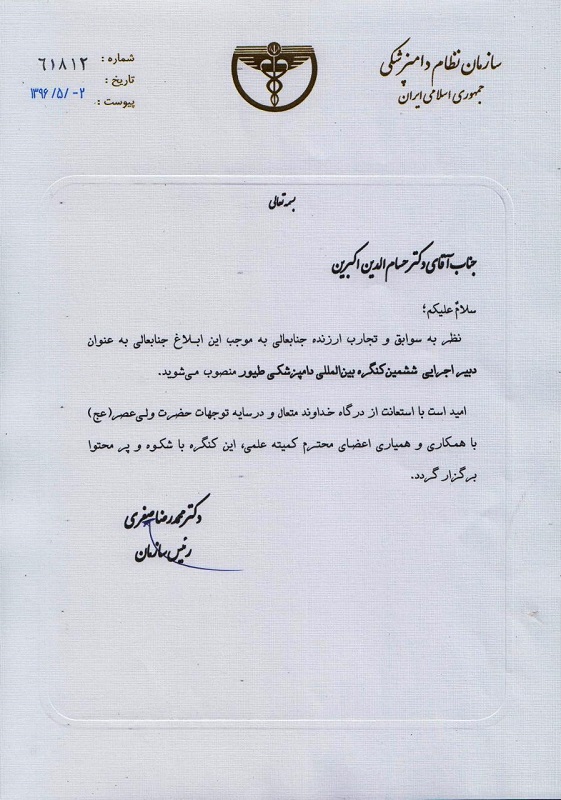 سازمان نظام دامپزشکی
جمهوری اسلامی ایران
شماره : ۶۱۸۱۲
تاریخ : ۱۳۹۶/۵/-۲
پیوست :
بسمه تعالی
جناب آقای دکتر حسام الدین اکبرین
سلامٌ علیکم؛
نظر به سوابق و تجارب ارزنده جنابعالی به موجب این ابلاغ جنابعالی به عنوان
دبیر اجرایی ششمین کنگره بین‌المللی دامپزشکی طیور منصوب می‌شوید.
امید است با استعانت از درگاه خداوند متعال و درسایه توجهات حضرت ولی‌عصر(عج)
با همکاری و همیاری اعضای محترم کمیته علمی، این کنگره با شکوه و پر محتوا
برگزار گردد.
دکتر محمدرضا صفری
رئیس سازمان